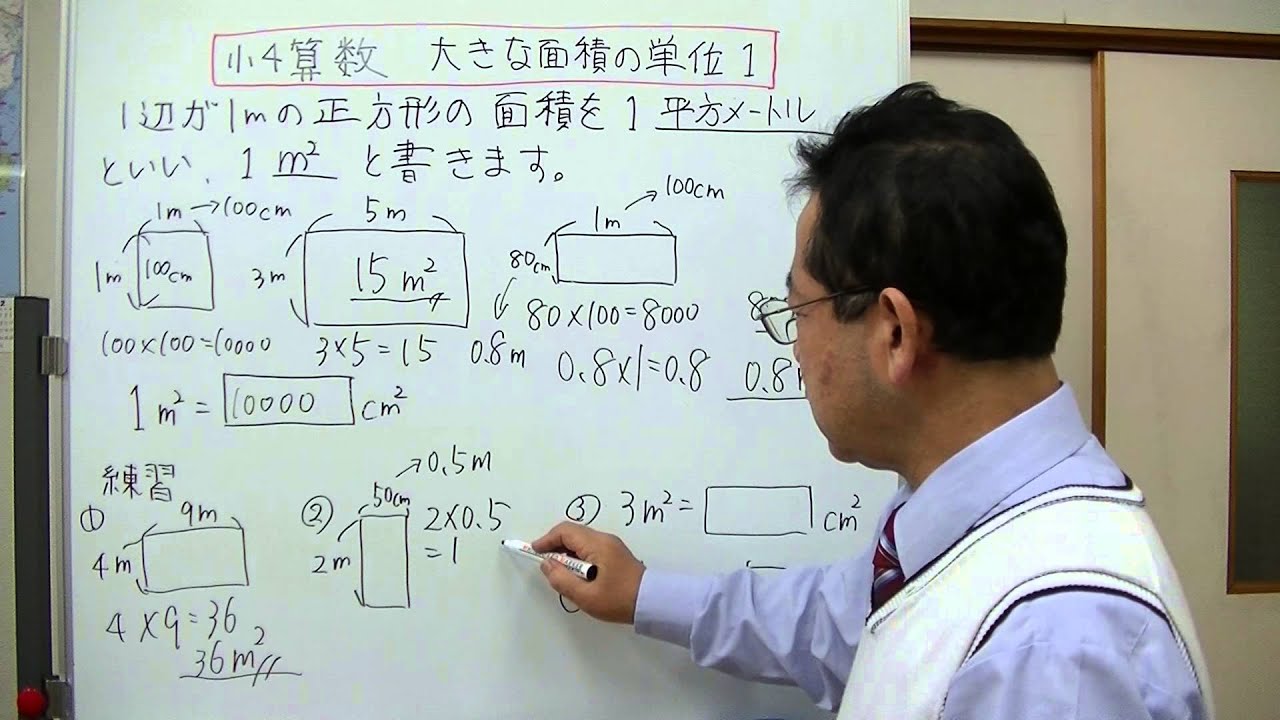 小4算数 大きな面積の単位1
1辺が1mの正方形の面積を1平方メートル
といい、1 m² と書きます。
1m→100cm
1m
100cm
100×100=10000
5m
3m
15m²
3×5=15
1m→100cm
80cm
0.8m
80×100=8000
0.8×1=0.8
8
0.8
1m²=10000cm²
練習
①
9m
4m
4×9=36
36m²
②
50cm→0.5m
2m
2×0.5
=1
③ 3m²= cm²